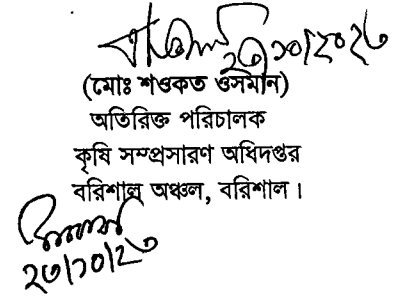 ২৩/১০/২০২৩
(মোঃ শওকত ওসমান)
অতিরিক্ত পরিচালক
কৃষি সম্প্রসারণ অধিদপ্তর
বরিশাল অঞ্চল, বরিশাল।
২৩/১০/২৩